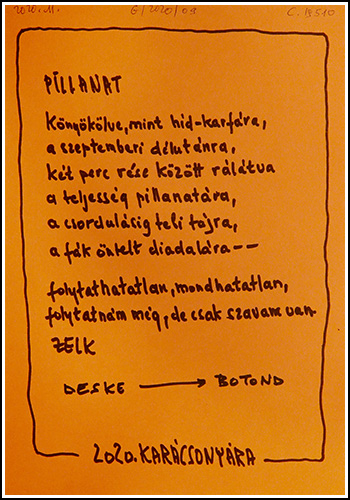 2020. M.
G/2020/09
C. 19510
PILLANAT
Könyökölve, mint híd-karfára,
a szeptemberi délutánra,
két perc rése között rálátva
a teljesség pillanatára,
a csordulásig teli tájra,
a fák önkelt diadalára--
folytathatatlan, mondhatatlan,
folytatnám még, de csak szavam van.
ZELK
DESKE → BOTOND
2020. KARÁCSONYÁRA